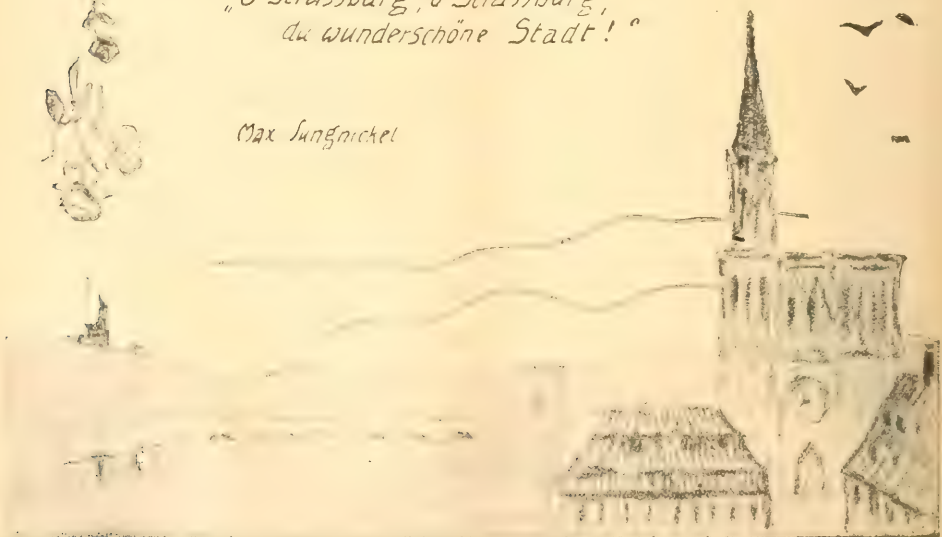 „O Strassburg, o Strassburg,
du wunderschöne Stadt!“
Max Jungnickel